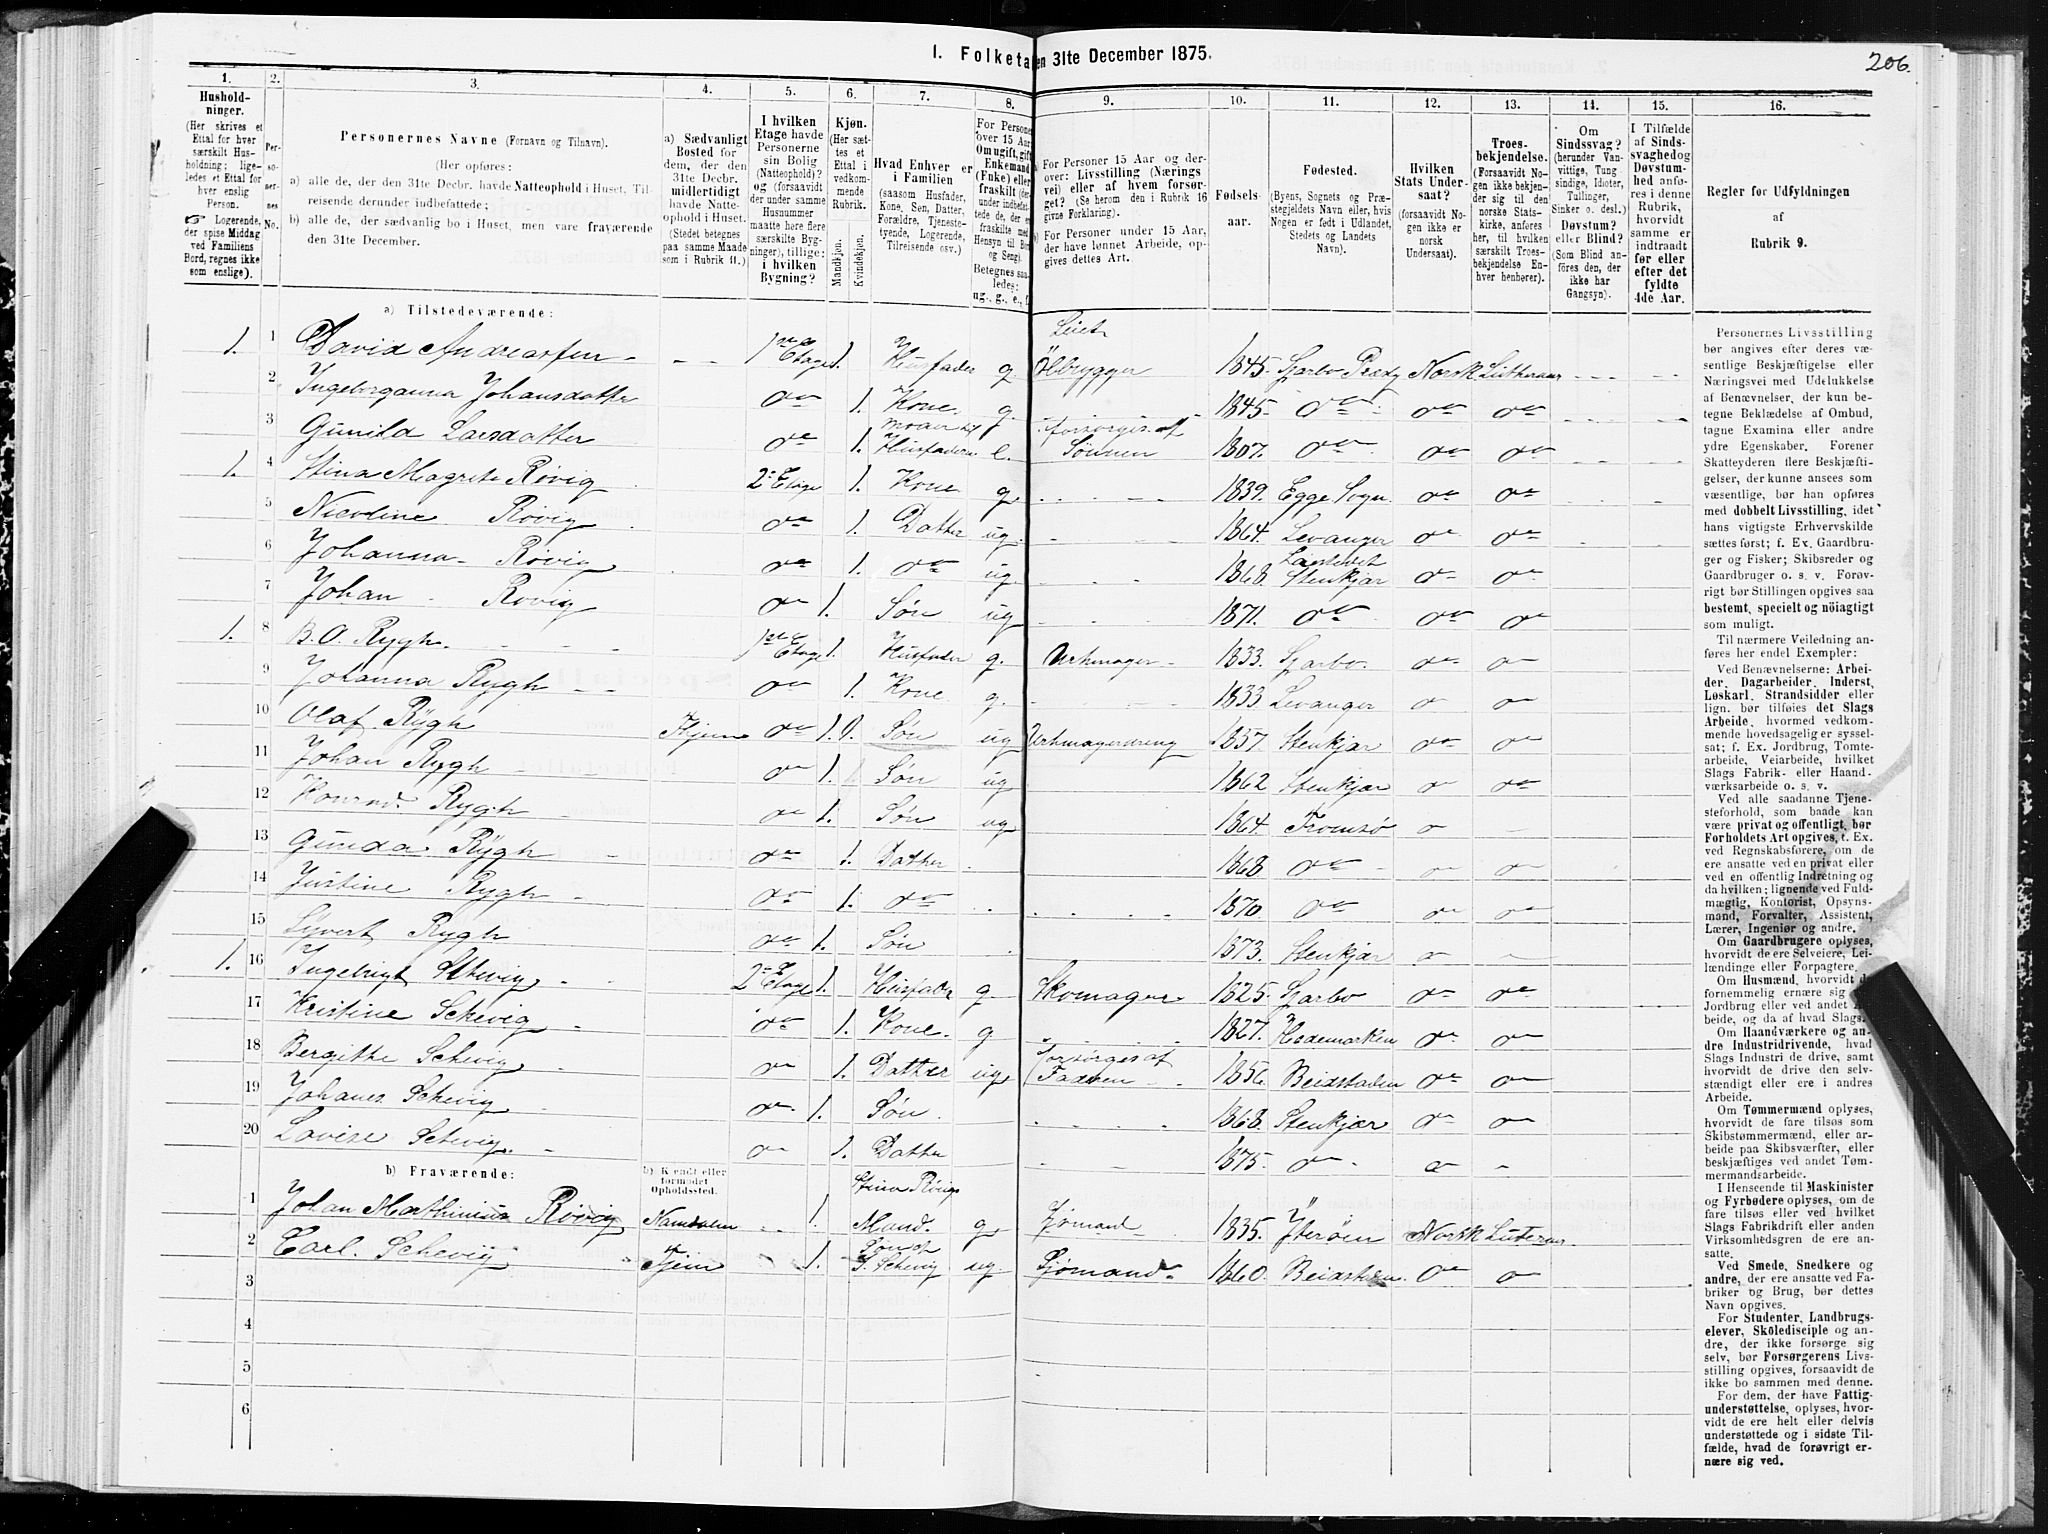 206.
I. Folketa en 31te December 1875.
1. 2. 3. 4. 5. 6. 7. 8. 9. 10. 11. 12. 13. 14. 15. 16.
Husholdninger.
(Her skrives et Ettal for hver særskilt Husholdning; ligeledes et Ettal for hver enslig Person.
☞ Logerende, der spise Middag ved Familiens Bord, regnes ikke som enslige).
Personernes No.
Personernes Navne (Fornavn og Tilnavn).
(Her opføres:
a) alle de, der den 31te Decbr. havde Natteophold i Huset, Tilreisende derunder indbefattede;
b) alle de, der sædvanlig bo i Huset, men vare fraværende den 31te December.
a) Sædvanligt Bosted for dem, der den 31te Decbr. midlertidigt havde Natteophold i Huset. (Stedet betegnes paa samme Maade som i Rubrik 11.)
I hvilken Etage havde Personerne sin Bolig (Natteophold)? og (forsaavidt der under samme Husnummer maatte høre flere særskilte Bygninger), tillige: i hvilken Bygning?
Kjøn. (Her sættes et Ettal i vedkommende Rubrik.
Mandkjøn. Kvindekjøn.
Hvad Enhver er i Familien
(saasom Husfader, Kone, Søn, Datter, Forældre, Tjenestetyende, Logerende, Tilreisende osv.)
For Personer 15 Aar og derover: Livsstilling (Næringsvei) eller af hvem forsørget? (Se herom den i Rubrik 16 givne Forklaring).
For Personer under 15 Aar, der have lønnet Arbeide, opgives dettes Art.
Fødselsaar.
Fødested.
(Byens, Sognets og Præstegjeldets Navn eller, hvis Nogen er født i Udlandet, Stedets og Landets Navn).
Hvilken Stats Undersaat?
(forsaavidt Nogen ikke er norsk Undersaat).
Troesbekjendelse.
(Forsaavidt Nogen ikke bekjender sig til den norske Statskirke, anføres her, til hvilken særskilt Troesbekjendelse Enhver henhører).
Om Sindssvag? (herunder Vanvittige, Tungsindige, Idioter, Tullinger, Sinker o. desl.) Døvstum? eller Blind? (Som Blind anføres den, der ikke har Gangsyn).
I Tilfælde af Sindssvaghed og Døvstumhed anføres i denne Rubrik, hvorvidt samme er indtraadt før eller efter det fyldte 4de Aar.
Regler for Udfyldningen af Rubrik 9.
a) Tilstedeværende:
1. 1 David Andreassen 1ste Etage 1. Husfader g. Leiet Ölbrygger 1845. Sparbo Præstg Norsk Lutheraner
2 Ingeborganna Johansdatter do 1. Kone. g. 1845. do do do
3 Gunild Larsdatter do 1. Moder til Husfaderen e. forsørges af Sønnen 1807. do do do
1. 4 Stina Magrete Røvig 2. Etage 1. Kone g. 1839. Egge Sogn. do do
5 Nicoline Røvig do 1. Datter ug. 1864. Levanger do do
6 Johanna Røvig do 1. do ug. 1868. Ladestedet Stenkjær do do
7 Johan Røvig do 1. Søn ug 1871. do do do
1. 8 B. O. Rygh. 1ste Etage 1. Husfader g. Urhmager 1833. Sparbo do do
9 Johanna Rygh do 1. Kone g. 1833. Levanger do do
10 Olaf Rygh Hjem do 1. Søn ug Urhmagerdreng 1857. Stenkjær do do
11 Johan Rygh do 1. Søn ug 1862 Stenkjær do do
12 Konrad Rygh do 1. Søn ug 1864. Tromsø do
13 Gunda Rygh do 1. Datter 1868 do do do
14 Justine Rygh do 1. do 1870 do do do
15 Syvert Rygh do 1. Søn 1873. Stenkjær do
1. 16 Ingebrigt Schevig 2. Etage 1. Husfader g Skomager 1825. Sparbo do do
17 Kristine Schevig do 1. Kone. g 1827. Hedemarken do do
18 Bergitte Schevig do 1. Datter ug forsørges af Faderen 1856. Beidstaden do do
19 Johanes Schevig do 1. Søn. 1868. Stenkjær do do
20 Lovise Schevig. do 1. Datter 1875. do do
b) Fraværende:
b) Kjendt eller formodet Opholdssted.
1 Johan Marthinius Røvig Namdalen 1. Stina Røvigs Mand. g Sjømand 1835. Yterøen Norsk Luteran
2 Carl. Schevig Hjem 1. Søn af I. Schevig ug. Sjømand 1860. Beidstaden. do do
3
4
5
6
Personernes Livsstilling bør angives efter deres væsentlige Beskjæftigelse eller Næringsvei med Udelukkelse af Benævnelser, der kun betegne Beklædelse af Ombud, tagne Examina eller andre ydre Egenskaber. Forener Skatteyderen flere Beskjæftigelser, der kunne ansees som væsentlige, bør han opføres med dobbelt Livsstilling, idet hans vigtigste Erhvervskilde sættes først; f. Ex. Gaardbruger og Fisker; Skibsreder og Gaardbruger o. s. v. Forøvrigt bør Stillingen opgives saa bestemt, specielt og nöiagtigt som muligt.
Til nærmere Veiledning anføres her endel Exempler:
Ved Benævnelserne: Arbeider, Dagarbeider, Inderst, Løskarl, Strandsidder eller lign. bør tilføies det Slags Arbeide, hvormed vedkommende hovedsagelig er sysselsat; f. Ex. Jordbrug, Tomtearbeide, Veiarbeide, hvilket Slags Fabrik- eller Haandværksarbeide o. s. v.
Ved alle saadanne Tjenesteforhold, som baade kan være privat og offentligt, bør Forholdets Art opgives, f. Ex. ved Regnskabsførere, om de ere ansatte ved en privat eller ved en offentlig Indretning og da hvilken; lignende ved Fuldmægtig, Kontorist, Opsynsmand, Forvalter, Assistent, Lærer, Ingeniør og andre.
Om Gaardbrugere oplyses, hvorvidt de ere Selveiere, Leilændinge eller Forpagtere.
Om Husmænd, hvorvidt de fornemmelig ernære sig Jordbrug eller ved andet beide, og da af hvad Slags.
Om Haandværkere og andre Industridrivende, hvad Slags Industri de drive, samt hvorvidt de drive den selvstændigt eller ere i andres Arbeide.
Om Tømmermænd oplyses, hvorvidt de fare tilsøs som Skibstømmermænd, eller arbeide paa Skibsværfter, eller beskjæftiges ved andet Tømmermandsarbeide.
I Henseende til Maskinister og Fyrbødere oplyses, om de fare tilsøs eller ved hvilket Slags Fabrikdrift eller anden Virksomhedsgren de ere ansatte.
Ved Smede, Snedkere og andre, der ere ansatte ved Fabriker og Brug, bør dettes Navn opgives.
For Studenter, Landbrugselever, Skoledisciple og andre, der ikke forsørge sig selv, bør Forsørgerens Livsstilling opgives, forsaavidt de ikke bo sammen med denne.
For dem, der have Fattigunderstøttelse, oplyses, hvorvidt de ere helt eller delvis understøttede og i sidste Tilfælde, hvad de forøvrigt ernære sig ved.